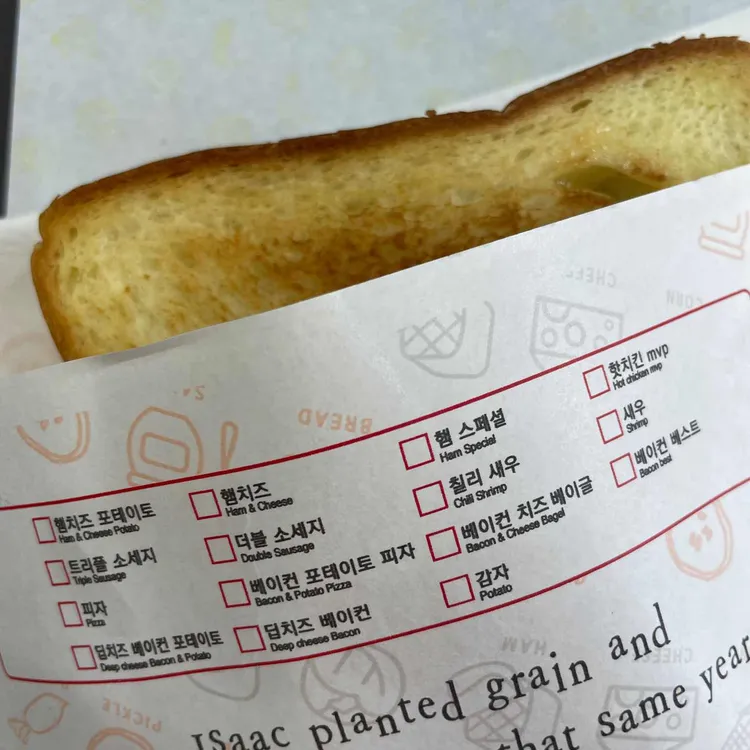 CHEESE
CORN
BREAD
햄치즈 포테이토
Ham & Cheese Potato
트리플 소세지
Triple Sausage
피자
Pizza
딥치즈 베이컨 포테이토
Deep cheese Bacon & Potato
햄치즈
Ham & Cheese
더블 소세지
Double Sausage
베이컨 포테이토 피자
Bacon & Potato Pizza
딥치즈 베이컨
Deep cheese Bacon
햄 스페셜
Ham Special
칠리 새우
Chili Shrimp
베이컨 치즈 베이글
Bacon & Cheese Bagel
감자
Potato
핫치킨 mvp
Hot chicken mvp
새우
Shrimp
베이컨 베스트
Bacon best
HAM
CHEESE
PICKLE
Isaac planted grain and
that same year